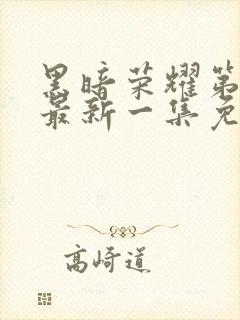 黑暗荣耀第
最新一集免
高崎道